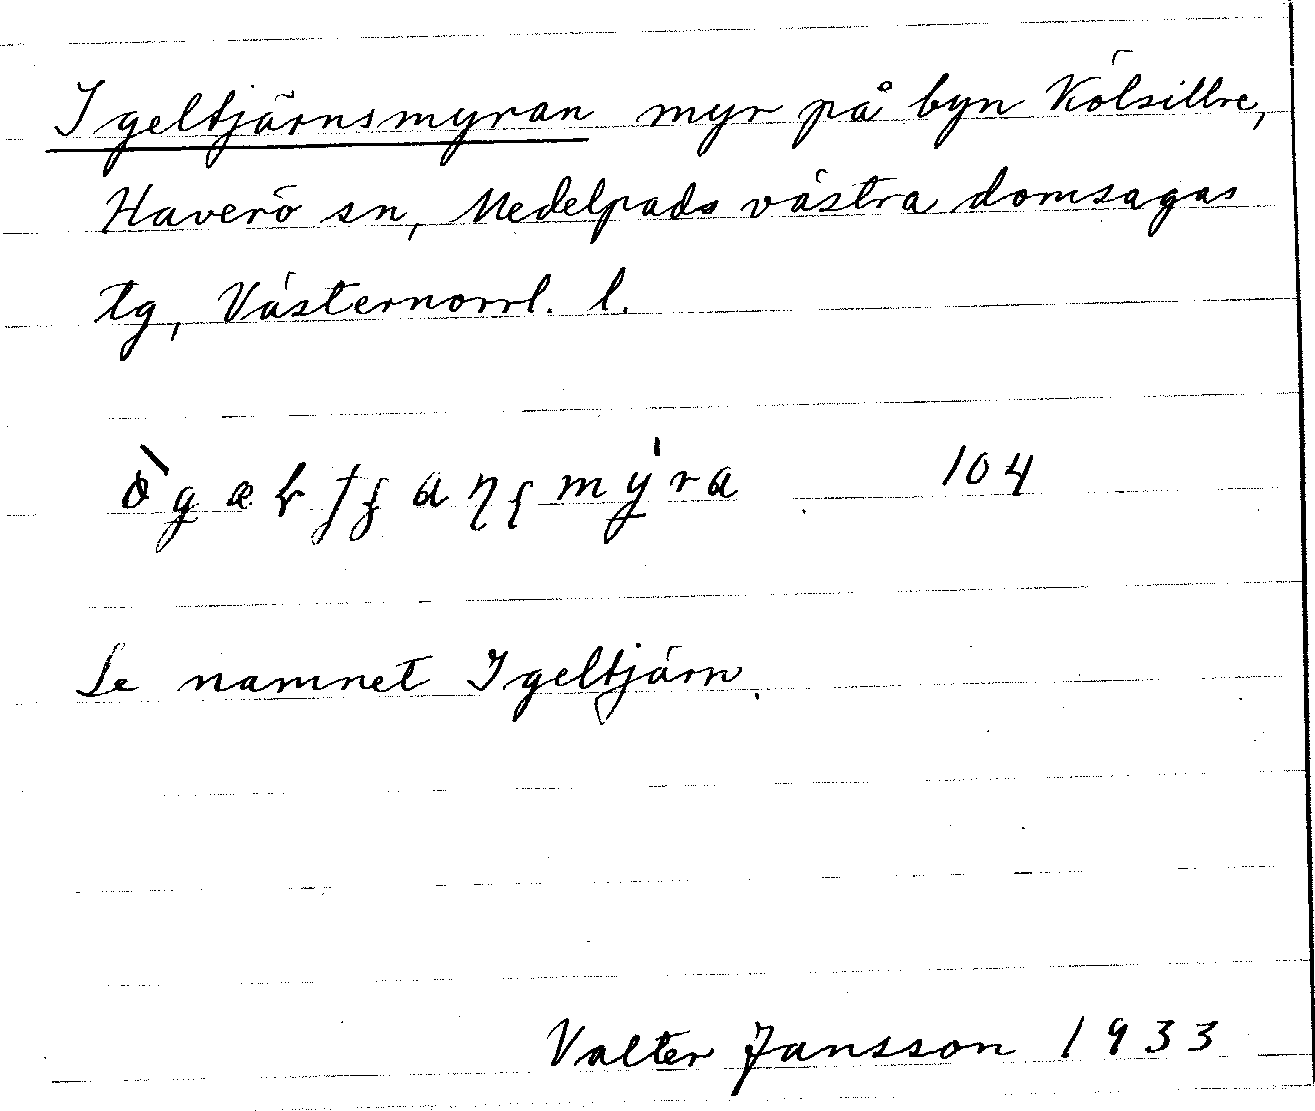 Igeltjärnsmyran myr på byn Kölsillre,
Haverö sn, Medelpads västra domsagas
tg, Västernorrl. l.
104
Se namnet Igeltjärn.
Valter Jansson 1933